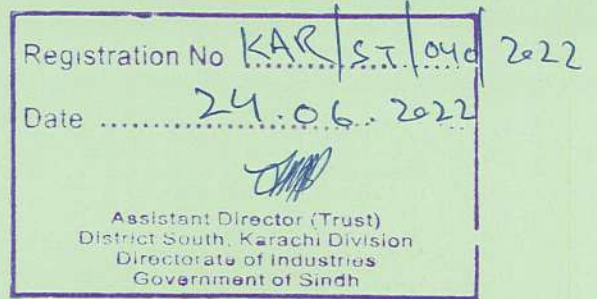 Registration No KAR/ST/040/2022
Date 24.06.2022
Assistant Director (Trust)
District South, Karachi Division
Directorate of Industries
Government of Sindh